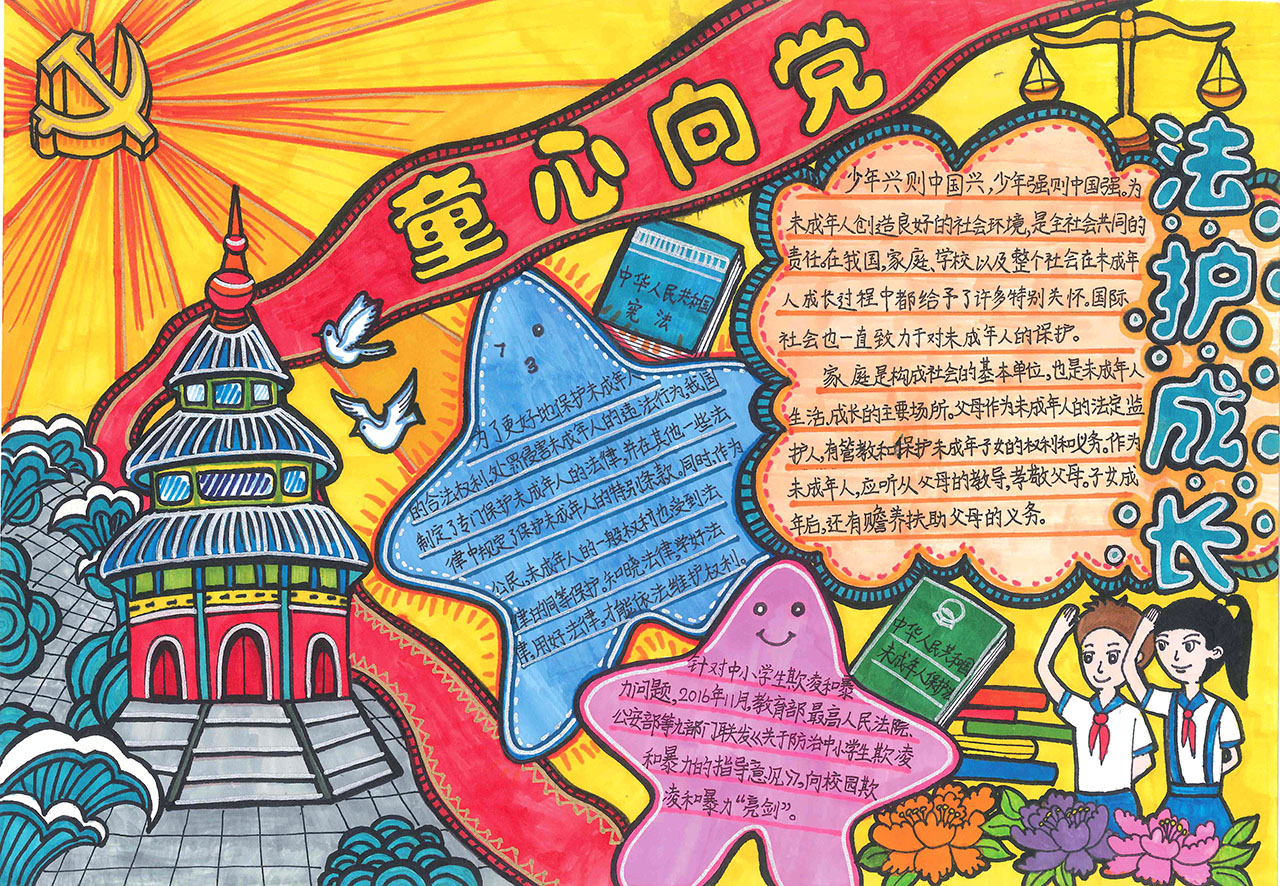 童心向党
法护成长
少年兴则中国兴，少年强则中国强。为
未成年人创造良好的社会环境，是全社会共同的
责任。在我国，家庭、学校以及整个社会在未成年
人成长过程中都给予了许多特别关怀。国际
社会也一直致力于对未成年人的保护。
家庭是构成社会的基本单位，也是未成年人
生活、成长的主要场所。父母作为未成年人的法定监
护人，有管教和保护未成年子女的权利和义务。作为
未成年人，应听从父母的教导，孝敬父母。子女成
年后，还有赡养扶助父母的义务。
中华人民共和国
宪法
7
3
为了更好地保护未成年人
的合法权利，处罚侵害未成年人的违法行为，我国
制定了专门保护未成年人的法律，并在其他一些法
律中规定了保护未成年人的特别条款。同时，作为
公民，未成年人的一般权利也受到法
律的同等保护。知晓法律，学好法
律，用好法律，才能依法维护权利。
中华人民共和国
未成年人保护法
针对中小学生欺凌和暴
力问题，2016年11月，教育部、最高人民法院、
公安部等九部门联发《关于防治中小学生欺凌
和暴力的指导意见》，向校园欺
凌和暴力“亮剑”。